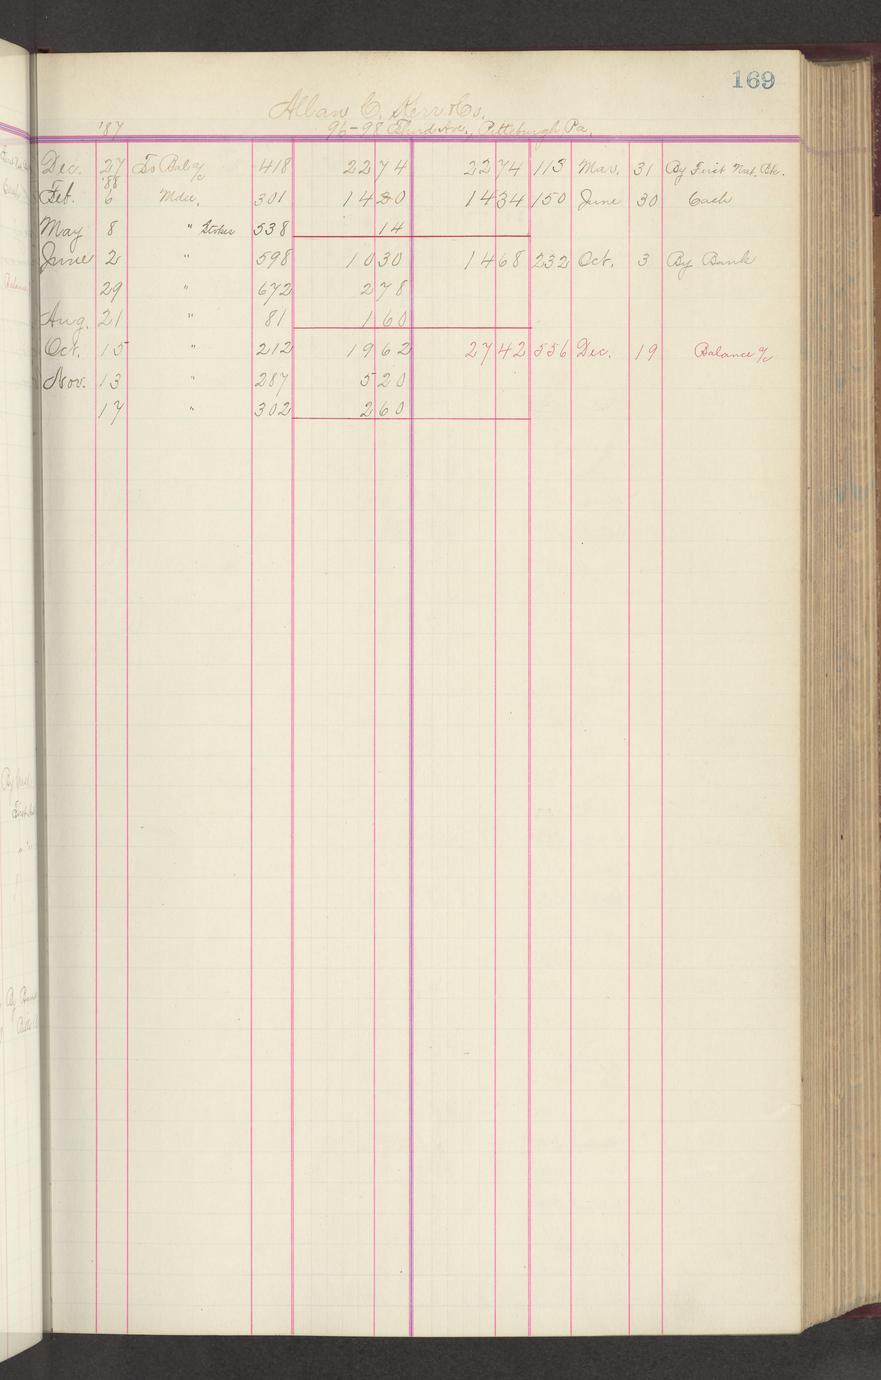 169
Alban C. Kerr & Co.
'87 96-98 Third Ave., Pittsburgh Pa.
Dec. 27 To Bal a/c 418 22 74 22 74 113 Mar. 31 By First Nat. Bk.
'88
Feb. 6 Mdse. 301 14 20 14 34 150 June 30 Cash
May 8 " Stoker 538 14
June 2 " 598 10 30 14 68 232 Oct. 3 By Bank
29 " 672 2 78
Aug. 21 " 81 1 60
Oct. 15 " 212 19 62 27 42 556 Dec. 19 Balance a/c
Nov. 13 " 287 5 20
17 " 302 2 60